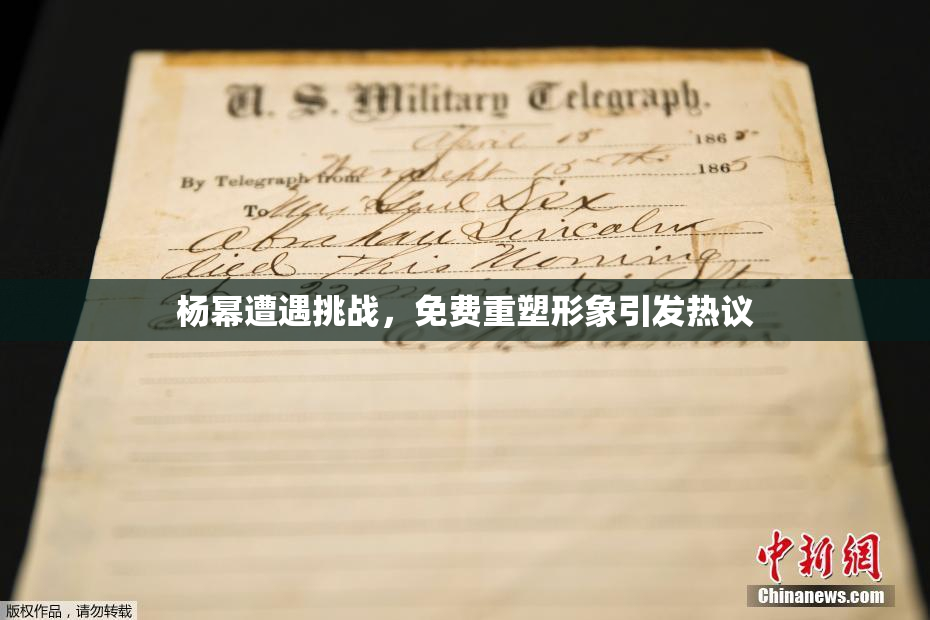 U. S. Military Telegraph.
April 15 1865
By Telegraph from War Dept 15th 1865
To Maj Genl Dix
Abraham Lincoln
died This Morning
at 22 minutes after
杨幂遭遇挑战，免费重塑形象引发热议
E. M. Stanton
中新网
Chinanews.com
版权作品，请勿转载